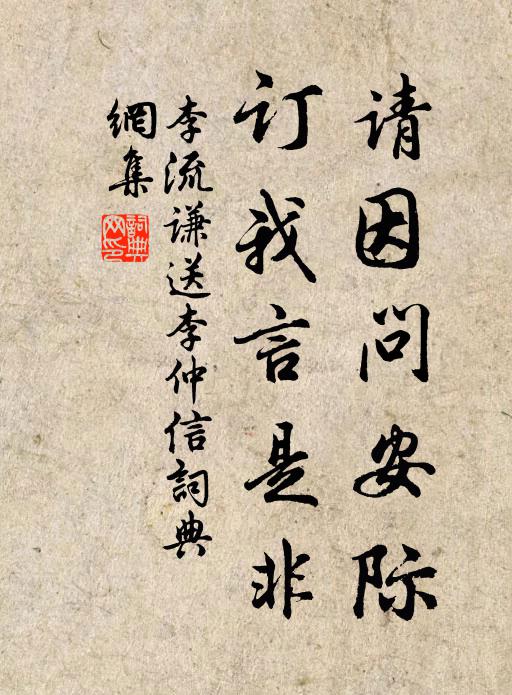 请因问安际
订我言是非
李流谦送李仲信詞典
網集
詞典
网印